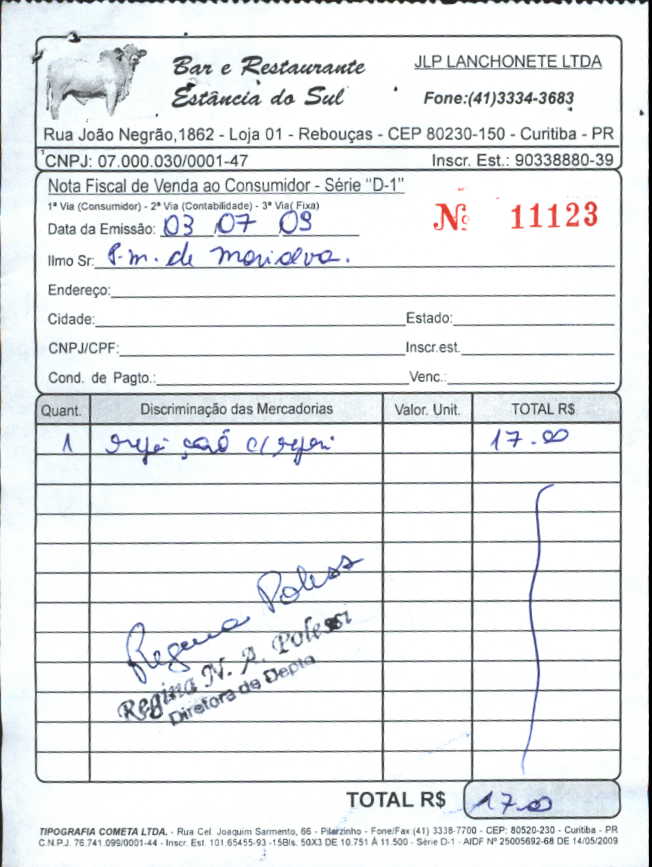 Bar e Restaurante
Estância do Sul
JLP LANCHONETE LTDA
Fone:(41)3334-3683
Rua João Negrão,1862 - Loja 01 - Rebouças - CEP 80230-150 - Curitiba - PR
CNPJ: 07.000.030/0001-47 Inscr. Est.: 90338880-39
Nota Fiscal de Venda ao Consumidor - Série "D-1"
1ª Via (Consumidor) - 2ª Via (Contabilidade) - 3ª Via( Fixa)
Nº 11123
Data da Emissão: 03 07 09
Ilmo Sr: P.m. de Marialva.
Endereço:
Cidade: Estado:
CNPJ/CPF: Inscr.est.
Cond. de Pagto.: Venc.:
Quant. Discriminação das Mercadorias Valor. Unit. TOTAL R$
1 refeição c/ refri 17.00
Regina Polessi
Regina N. A. Polessi
Diretora de Depto
TOTAL R$ 17.00
TIPOGRAFIA COMETA LTDA. - Rua Cel. Joaquim Sarmento, 66 - Pilarzinho - Fone/Fax (41) 3338-7700 - CEP: 80520-230 - Curitiba - PR
C.N.P.J. 76.741.099/0001-44 - Inscr. Est. 101.65455-93 -15Bls. 50X3 DE 10.751 À 11.500 - Série D-1 - AIDF Nº 25005692-68 DE 14/05/2009